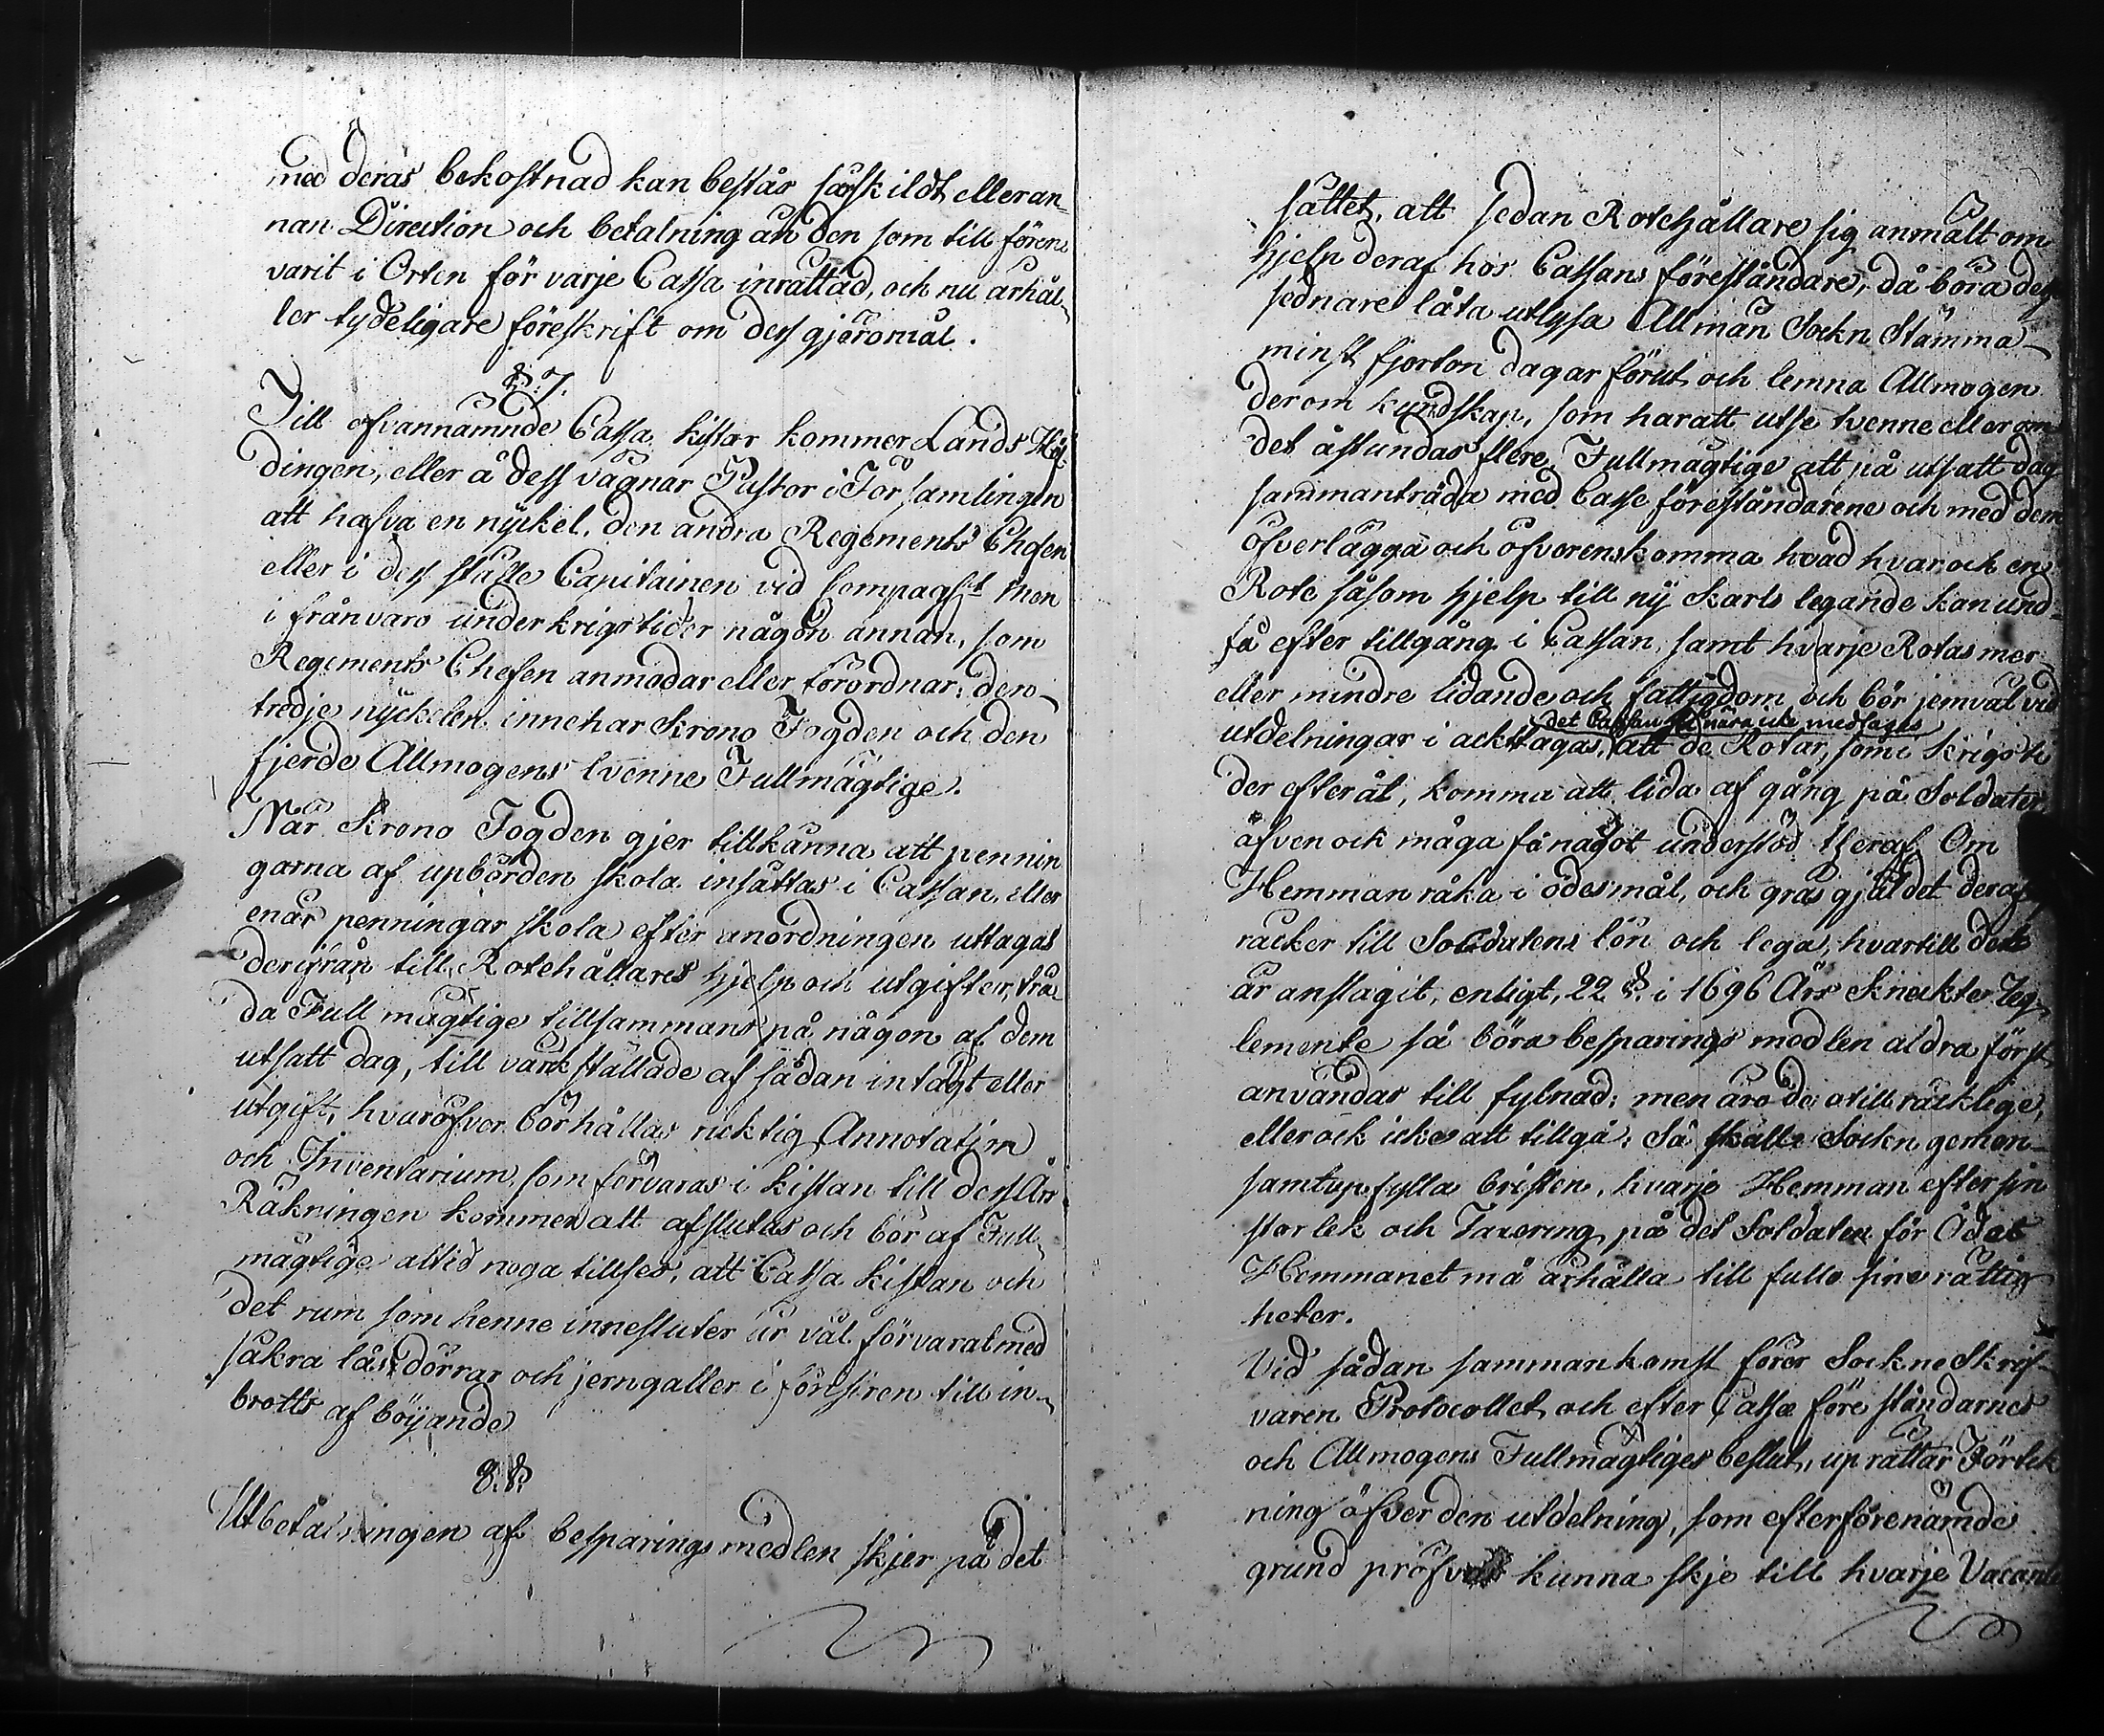 med deras bekostnad kan bestås särskildt eller an-
nan Direction och betalning än den som till förene
varit i Orten för varje Cassa inrättad, och nu ärhål-
ler tydeligare föreskrift om dess gjöromål.
§ 7.
Till ofvannämnde Cassa kistor kommer Lands Höf-
dingen, eller å dess vägnar Pastor i Församlingen
att hafva en nyckel, den andra Regements Chefen
eller i dess ställe Capitainen vid Compagt men
i frånvaro under krigstider någon annan, som
Regements Chefen anmodar eller förordnar; den
tredje nyckelen innehar Krono Fogden och den
fjerde Allmogens tvenne Fullmägtige.
När Krono Fogden gjer tillkänna att pennin
garna af upbörden skola insättas i Cassan, eller
enär penningar skola efter anordningen uttagas
derifrån till Rotehållares hjelp och utgifter, trä
da Fullmägtige tillsammans på någon af dem
utsatt dag, till värkställade af sådan intägt eller
utgift, hvaröfver bör hållas ricktig Annotation
och Inventarium, som förvaras i kistan till dess Års
Räkningen kommer att afslutas och bör af Full-
mägtige altid noga tillses, att Cassa kistan och
det rum som henne innesluter är väl förvarat med
säkra lås, dörrar och jerngaller i fönstren till in-
brotts af böyande
8. §.
Utbetalningen af besparings medlen skjer på det
sättet, att sedan Rotehållare sig anmält om
hjelp deraf hos Cassans föreståndare, då böra desse
sednare låta utlysa Allmän Sockn Stämma
minst fjorton dagar förut och lemna Allmogen
derom kundskap, som har att utse tvenne eller om
det åstundas flere Fullmägtige att på utsatt dag
sammanträda med Casse föreståndarene och med dem
öfverlägga och öfverenskomma hvad hvar och en
Rote såsom hjelp till ny Karls legande kan und-
få efter tillgång i Cassan, samt hvarje Rotas mer
eller mindre lidande och fattigdom och bör jemväl vid
det Cassan nära icke medtages
utdelningar i ackttagas, att de Rotar, som i krigsti
der efteråt, komma att lida af gång på Soldater
äfven ock måga få något understöd heraf. Om
Hemman råka i ödesmål, och gräsgjäldet deraf ej
räcker till Soldatens lön och lega, hvartill det
är anslagit, enligt 22 §. i 1696 Års Knekte Reg
lemente så böra besparings medlen aldra först
användas till fylnad; men äro de otillräcklige,
eller ock icke att tillgå; Så skall Sockn gemen-
samt upfylla bristen, hvarje Hemman efter sin
storlek och Taxering, på det Soldaten för Ödes
Hemmanet må ärhålla till fullo sine rättig
heter.
Vid sådan sammankomst förer Sockne Skrif-
varen Protocollet och efter Cassæ föreståndarnes
och Allmogens Fullmägtiges beslut, uprättar Förtek
ning öfver den utdelning, som efter förenämde
grund pröfvas kunna skje till hvarje Vacante